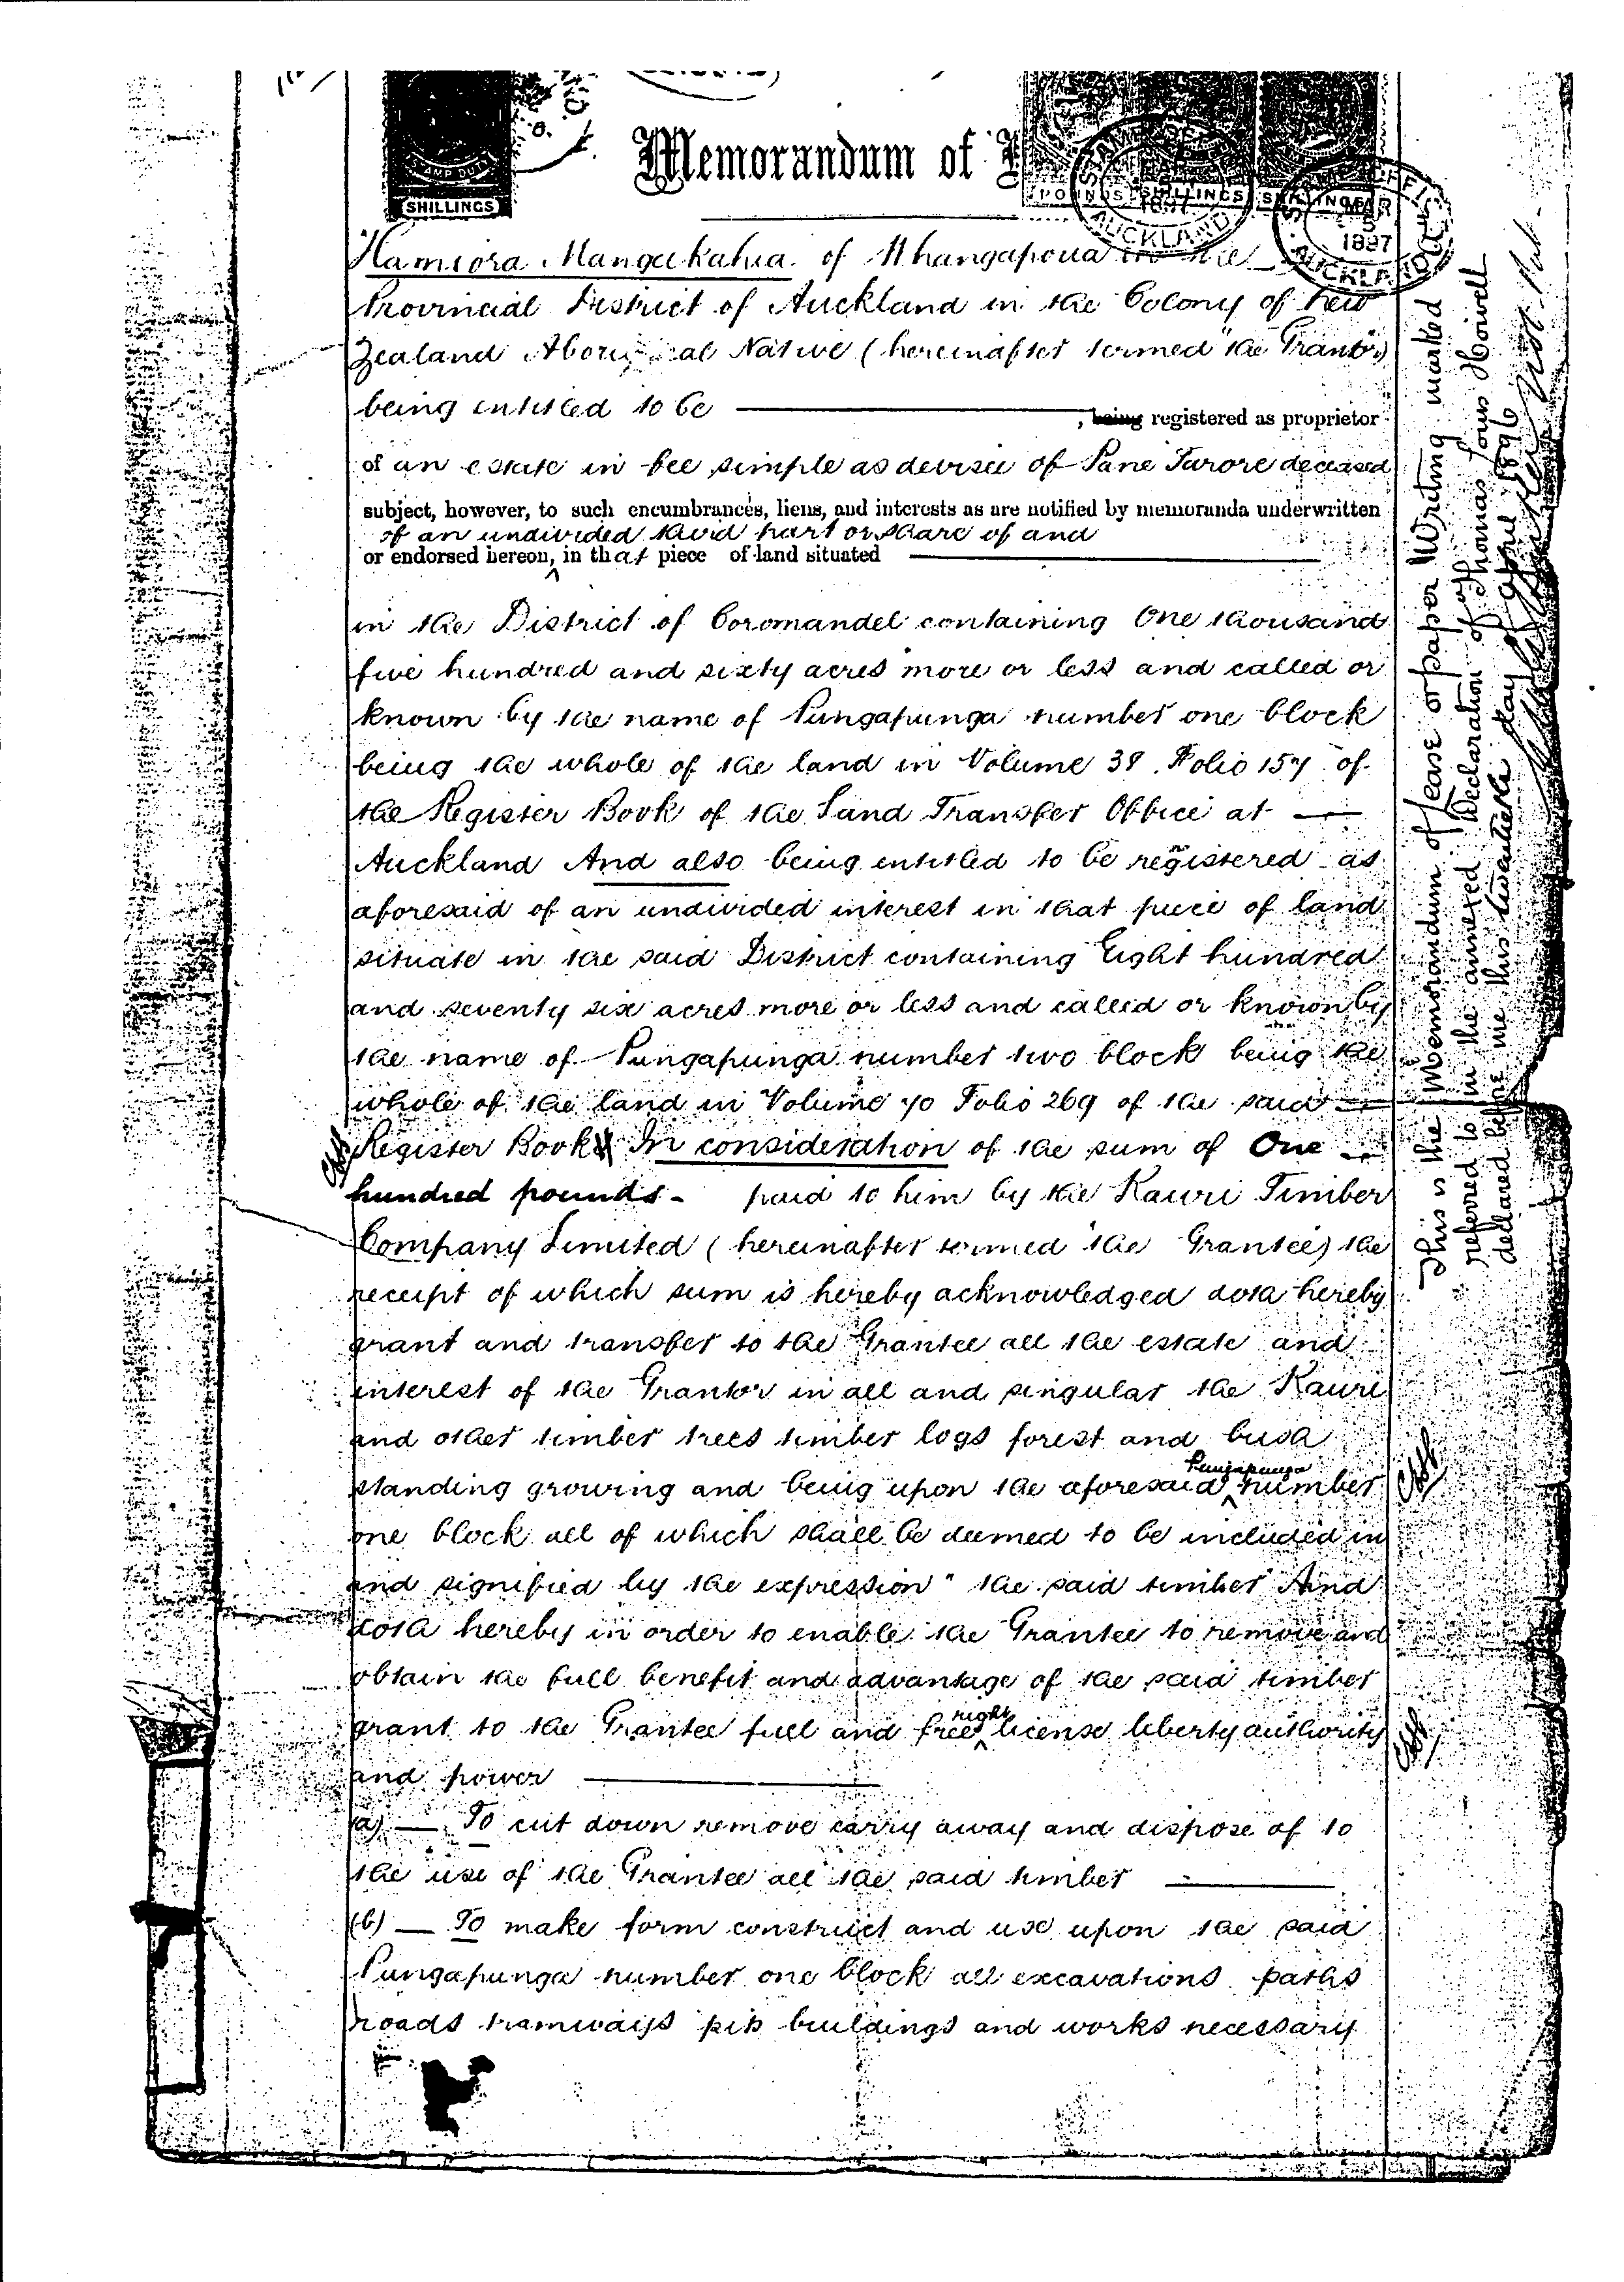 SHILLINGS
Memorandum of
POUNDS SHILLINGS SHILLINGS
1897
AUCKLAND
1897
AUCKLAND
Hamiora Mangakahia of Whangapoua in the
Provincial District of Auckland in the Colony of New
Zealand Aboriginal Native (hereinafter termed "the Grantor")
being entitled to be
, being registered as proprietor
of an estate in fee simple as devisee of Pane Turore deceased
subject, however, to such encumbrances, liens, and interests as are notified by memoranda underwritten
of an undivided third part or share of and
or endorsed hereon, in that piece of land situated
in the District of Coromandel containing One thousand
five hundred and sixty acres more or less and called or
known by the name of Pungapunga number one block
being the whole of the land in Volume Folio 157 of
the Register Book of the Land Transfer Office at
Auckland And also being entitled to be registered as
aforesaid of an undivided interest in that piece of land
situate in the said District containing Eight hundred
and seventy six acres more or less and called or known by
the name of Pungapunga number two block being the
whole of the land in Volume 70 Folio 269 of the said
Register Book In consideration of the sum of One
hundred pounds - paid to him by the Kauri Timber
Company Limited (hereinafter termed "the Grantee) the
receipt of which sum is hereby acknowledged doth hereby
grant and transfer to the Grantee all the estate and
interest of the Grantor in all and singular the Kauri
and other timber trees timber logs forest and bush
standing growing and being upon the aforesaid Pungapunga number
one block all of which shall be deemed to be included in
and signified by the expression "the said timber" And
doth hereby in order to enable the Grantee to remove and
obtain the full benefit and advantage of the said timber
grant to the Grantee full and free right license liberty authority
and power
(a) — To cut down remove carry away and dispose of to
the use of the Grantee all the said timber
(b) — To make form construct and use upon the said
Pungapunga number one block all excavations paths
roads tramways pits buildings and works necessary
This is the Memorandum of Lease or paper Writing marked
referred to in the annexed Declaration of Thomas Howell
declared before me this twentieth day of April 1896